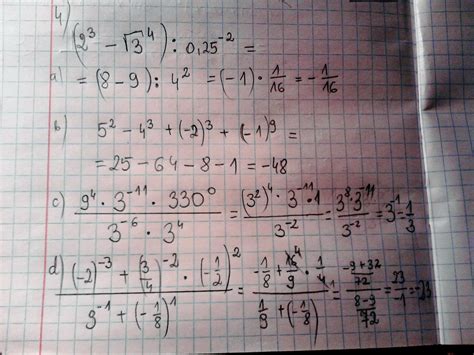 4)
(2³ − √3⁴) : 0,25⁻² =
a) = (8 − 9) : 4² = (−1) · 1/16 = − 1/16
b) 5² − 4³ + (−2)³ + (−1)⁹ =
= 25 − 64 − 8 − 1 = −48
c) (9⁴ · 3⁻¹¹ · 330⁰)/(3⁻⁶ · 3⁴) = ((3²)⁴ · 3⁻¹¹ · 1)/3⁻² = (3⁸ · 3⁻¹¹)/3⁻² = 3⁻¹ = 1/3
d) ((−2)⁻³ + (3/4)⁻² · (−1/2)²)/(9⁻¹ + (−1/8)¹) = (−1/8 + 16⁴/9 · 1/4₁)/(1/9 + (−1/8)) = ((−9+32)/72)/((8−9)/72) = 23/−1 = −23